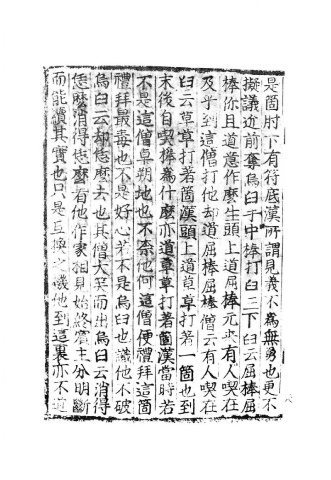 是箇肘下有符底漢所謂見義不為無勇也更不
擬議近前奪烏臼手中棒打臼三下臼云屈棒屈
棒你且道意作麼生頭上道屈棒元來有人喫在
及乎到這僧打他却道屈棒屈棒僧云有人喫在
臼云草草打著箇漢頭上道草草打著一箇也到
末後自喫棒為什麼亦道草草打著箇漢當時若
不是這僧卓朔地也不奈他何這僧便禮拜這箇
禮拜最毒也不是好心若不是烏臼也識他不破
烏臼云却恁麼去也其僧大笑而出烏臼云消得
恁麼消得恁麼看他作家相見始終賓主分明斷
而能續其實也只是互換之機他到這裏亦不道